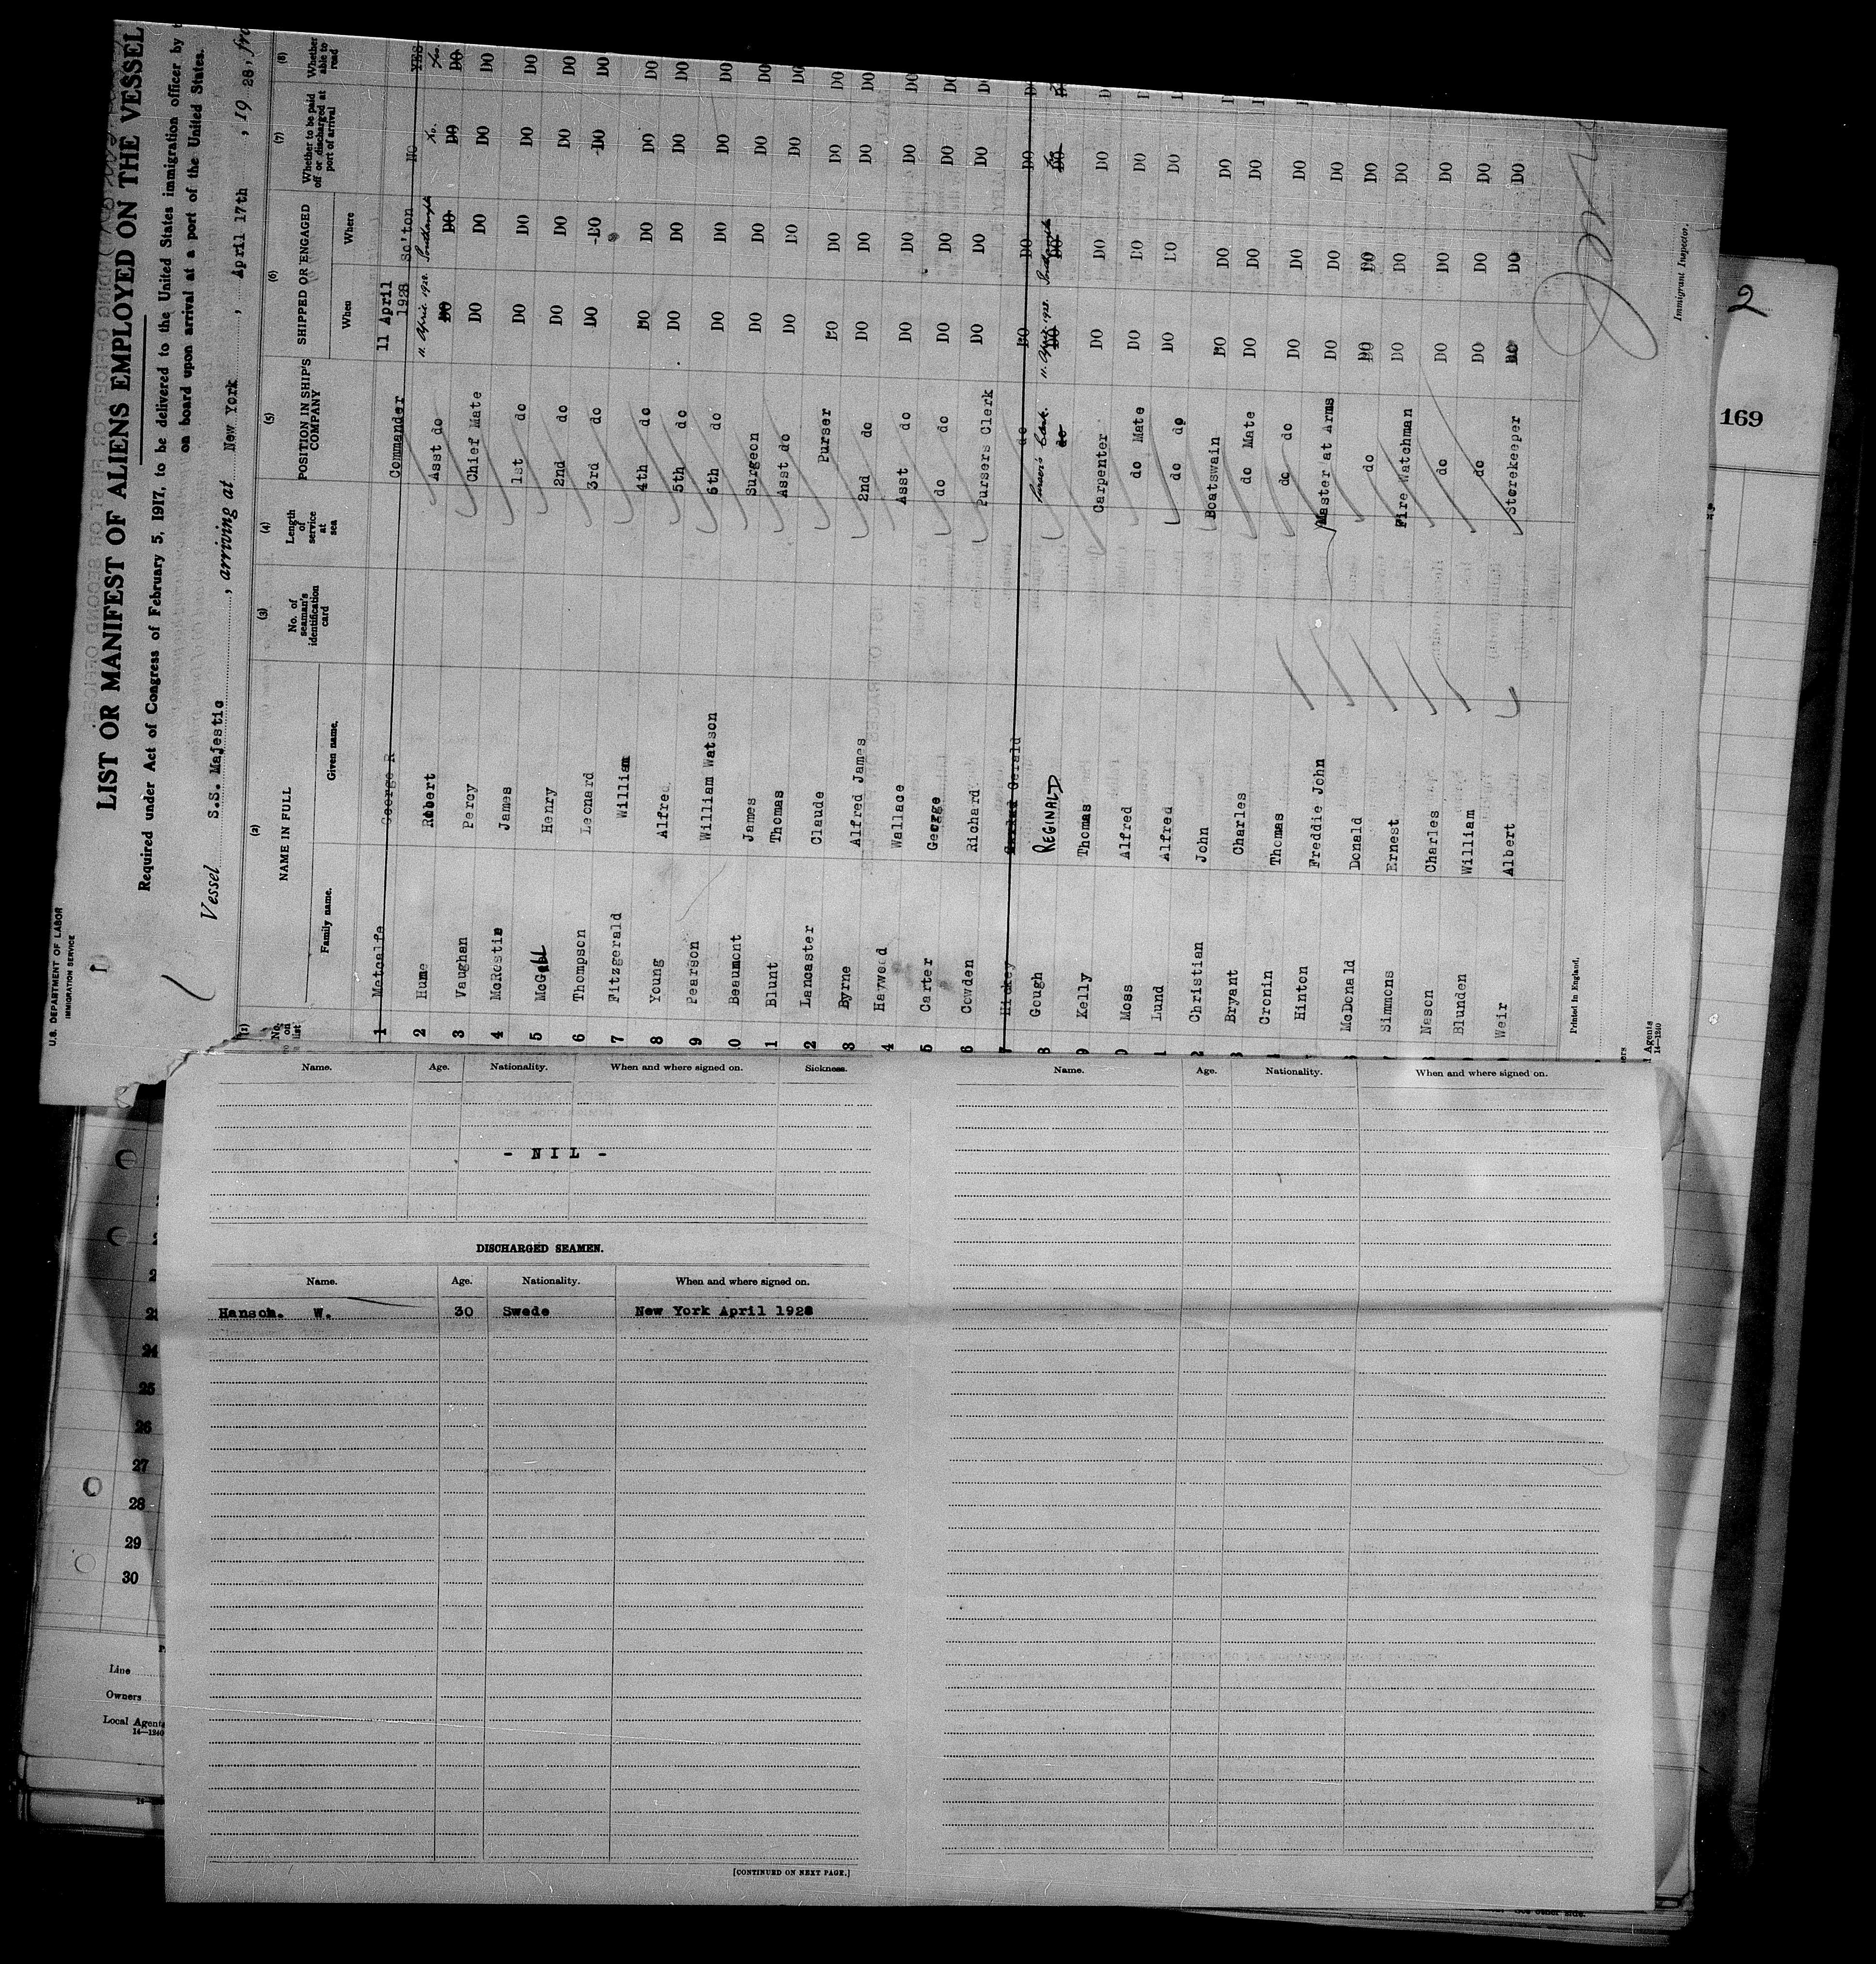 U.S. DEPARTMENT OF LABOR
IMMIGRATION SERVICE
LIST OR MANIFEST OF ALIENS EMPLOYED ON THE VESSEL
Required under Act of Congress of February 5, 1917, to be delivered to the United States immigration officer by
on board upon arrival at a port of the United States.
Vessel S.S. Majestic, arriving at New York, April 17th, 1928, fro
(1) (2) (3) (4) (5) (6) (7) (8)
No. on list NAME IN FULL No. of seaman's identification card Length of service at sea POSITION IN SHIP'S COMPANY SHIPPED OR ENGAGED Whether to be paid off or discharged at port of arrival Whether able to read
Family name. Given name. When Where
1 Metcalfe George R Commander 11 April 1928 So'ton NO YES
2 Hume Robert Asst do 11. April 1928. Southampton No. Yes DO DO DO DO
3 Vaughan Percy Chief Mate DO DO DO DO
4 McKestin James 1st do DO DO DO DO
5 McGill Henry 2nd do DO DO DO DO
6 Thompson Leonard 3rd do DO DO DO DO
7 Fitzgerald William
8 Young Alfred 4th do DO DO DO DO
9 Pearson William Watson 5th do DO DO DO DO
0 Beaumont James 6th do DO DO DO DO
1 Blunt Thomas Surgeon DO DO DO DO
2 Lancaster Claude Asst do DO DO DO DO
3 Byrne Alfred James Purser DO DO DO DO
4 Haywood Wallace 2nd do DO DO DO DO
5 Carter George Asst do DO DO DO DO
6 Cowden Richard do do DO DO DO DO
7 Hickey Gerald Pursers Clerk DO DO DO DO
8 Gough REGINALD do DO DO DO
Purser's Clerk. 11. April 1928. Southampton
9 Kelly Thomas Carpenter DO DO DO
0 Moss Alfred do Mate DO DO DO
1 Lund Alfred do do DO DO DO
2 Christian John Boatswain DO DO DO
3 Bryant Charles do Mate DO DO DO
Cronin Thomas do do DO DO DO
Hinton Freddie John Master at Arms DO DO DO
McDonald Donald do DO DO DO
Simmons Ernest Fire Watchman DO DO DO
Nason Charles do DO DO DO
Blunden William do DO DO DO
Weir Albert Storekeeper DO DO DO
Printed in England.
Immigrant Inspector.
Agents
14—1240
2
169
Name. Age. Nationality. When and where signed on. Sickness.
- N I L -
DISCHARGED SEAMEN.
Name. Age. Nationality. When and where signed on.
Hanson. W. 30 Swede New York April 1928
[CONTINUED ON NEXT PAGE.]
Name. Age. Nationality. When and where signed on.
24
25
26
27
28
29
30
Line
Owners
Local Agents
14—1240
See other side.